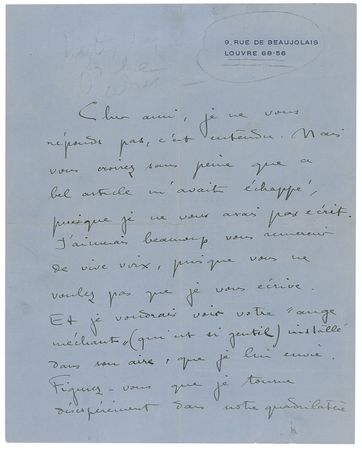 9, RUE DE BEAUJOLAIS
LOUVRE 68-56
Cher ami, je ne vous
réponds pas, c'est entendu. Mais
vous croirez sans peine que ce
bel article m'avait échappé,
puisque je ne vous avais pas écrit.
J'aimerais beaucoup vous remercier
de vive voix, puisque vous ne
voulez pas que je vous écrive.
Et je voudrais voir votre "ange
méchant" (qui est si gentil) installé
dans son aire, que je lui envie.
Figurez-vous que je tourne
désespérément dans notre quadrilatère